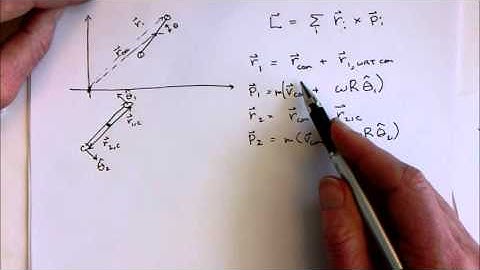 L⃗ = Σᵢ r⃗ᵢ × p⃗ᵢ
r⃗₁ = r⃗com + r⃗₁,WRT com
p⃗₁ = m(v⃗com + ωRθ̂₁)
r⃗₂ = r⃗co r⃗₂,c
p⃗₂ = m(v⃗com Rθ̂₂)
r⃗ᵢ
r⃗com
θ
θ̂₁
r⃗₁,c
r⃗₂,c
θ̂₂